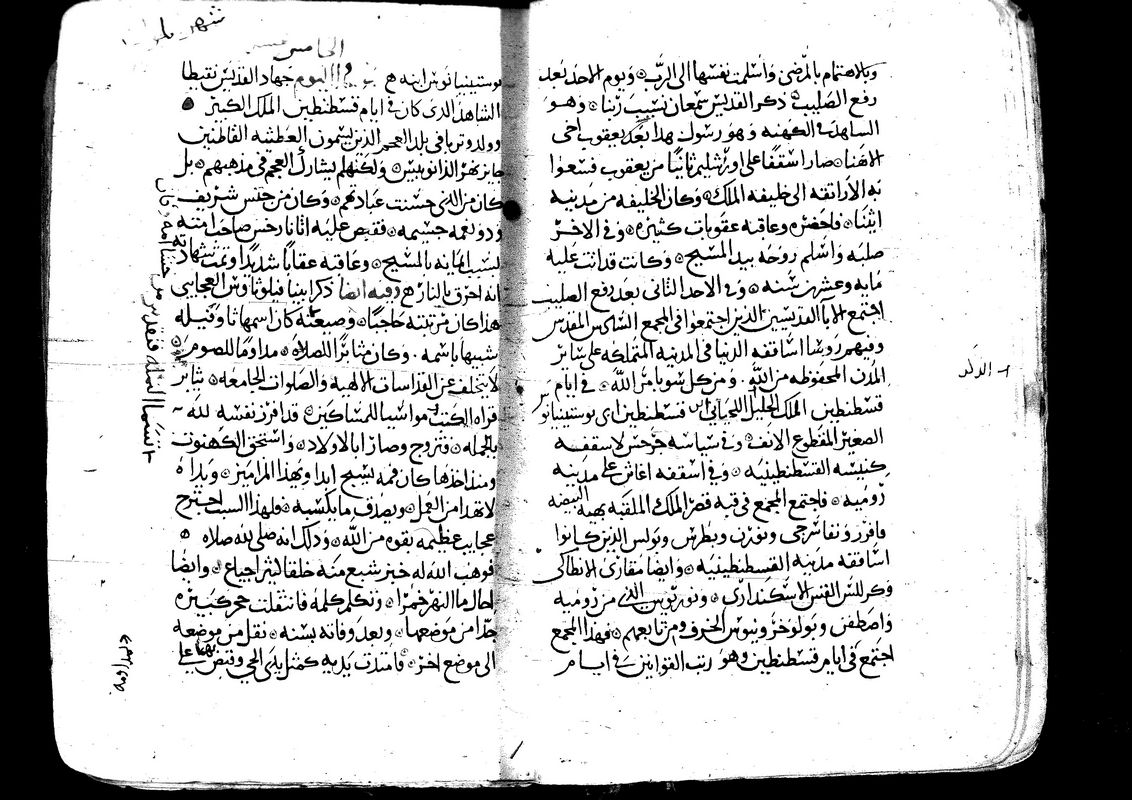 وبالاهتمام بالمرضى واسلمت نفسها الى الرب ويوم الاحد بعد
رفع الصليب ذكر القديس سمعان نسيب ربنا وهو
الساهد في الكهنه وهو رسول هدا بعد يعقوب اخى
الاهنا صار اسقفا على اورشليم ثانيا من يعقوب فسعوا
به الاراتقه الى خليفه الملك وكان الخليفه من مدينه
اثينا فاحضره وعاقبه عقوبات كثيره وفي الاخر
صلبه واسلم روحه بيد المسيح وكانت قد اتت عليه
مايه وعشرين سنه وفي الاحد الثاني بعد رفع الصليب
اجتمع الابا القديسين الذين اجتمعوا في المجمع السادس المقدس
وفيهم روسا اساقفه الدنيا في المدينه المتملكه على ساير
المدن المحفوظه من الله ومن كل سوبا من الله في ايام
قسطنطين الملك الجليل اللحياني قسطنطين اي يوستينيانوس
الصغير المقطوع الانف وفي سياسه جرجس لاسقفيه
كنيسه القسطنطينيه وفي اسقفه اغاثن على مدينه
روميه فاجتمع المجمع في قبه قصر الملك الملقبه بهيه البيضه
فافرزو نفا سرجى وبورن وبطرس وبولس الذين كانوا
اساقفه مدينه القسطنطينيه وايضا مقاري الانطاكي
وكرللس القس الاسكندراني ونوريوس الذي من روميه
واصطفن وبولوخر ونيوس الخرف ومن تابعهم فهذا المجمع
اجتمع في ايام قسطنطين وهو رتب القوانين في ايام
الولد
شهر
الخامس
يوستينيانوس ابنه اليوم جهاد القديس نقيطا
الشاهد الذي كان في ايام قسطنطين الملك الكبير
وولد وتربا في بلد العجم الذين يسمون القاطنين
جايز نهر الدانوبيس ولكنه لم يشارك العجم في مدهبهم بل
كان من الذي حسنت عبادتهم وكان من جنس شريف
ودو نعمه جسيمه فقبض عليه اثانارخس صاحب امته
لسبب ايمانه بالمسيح وعاقبه عقابا شديدا وتمت شهادته
انه احرق بالنار وفيه ايضا ذكر ابينا فيلوثاوس العجايبي
هدا كان مرتبته حاجبا وصيعته كان اسمها ثاوفيله
شبيها باسمه وكان مثابرا للصلاه مداوما للصوم
لا يتخلف عن القداسات الالهيه والصلوات الجامعه ثابر
قراه الكتب مواسيا للمساكين قد افرز نفسه لله
بالجمله فتزوج وصار ابا لاولاد واستحق الكهنوت
ومنذ اخذها كان فمه يسبح ابدا وبهذا المزامير ويداه
لا تهدا من العمل ويصدق ما يكسبه فلهذا السبب اجترح
عجايب عظيمه بقوه من الله ودلك انه صلى لله صلاه
فوهب الله له خبز شبع منه خلقا كثير اجياع وايضا
احال ما النهر خمرا وتكلم كلمه فانتقلت حجر كبيره
جدا من موضعها وبعد وفاته بسنه نقل من موضعه
الى موضع اخر فامتدت يديه كمثل يدي الحي وقبض بهما على